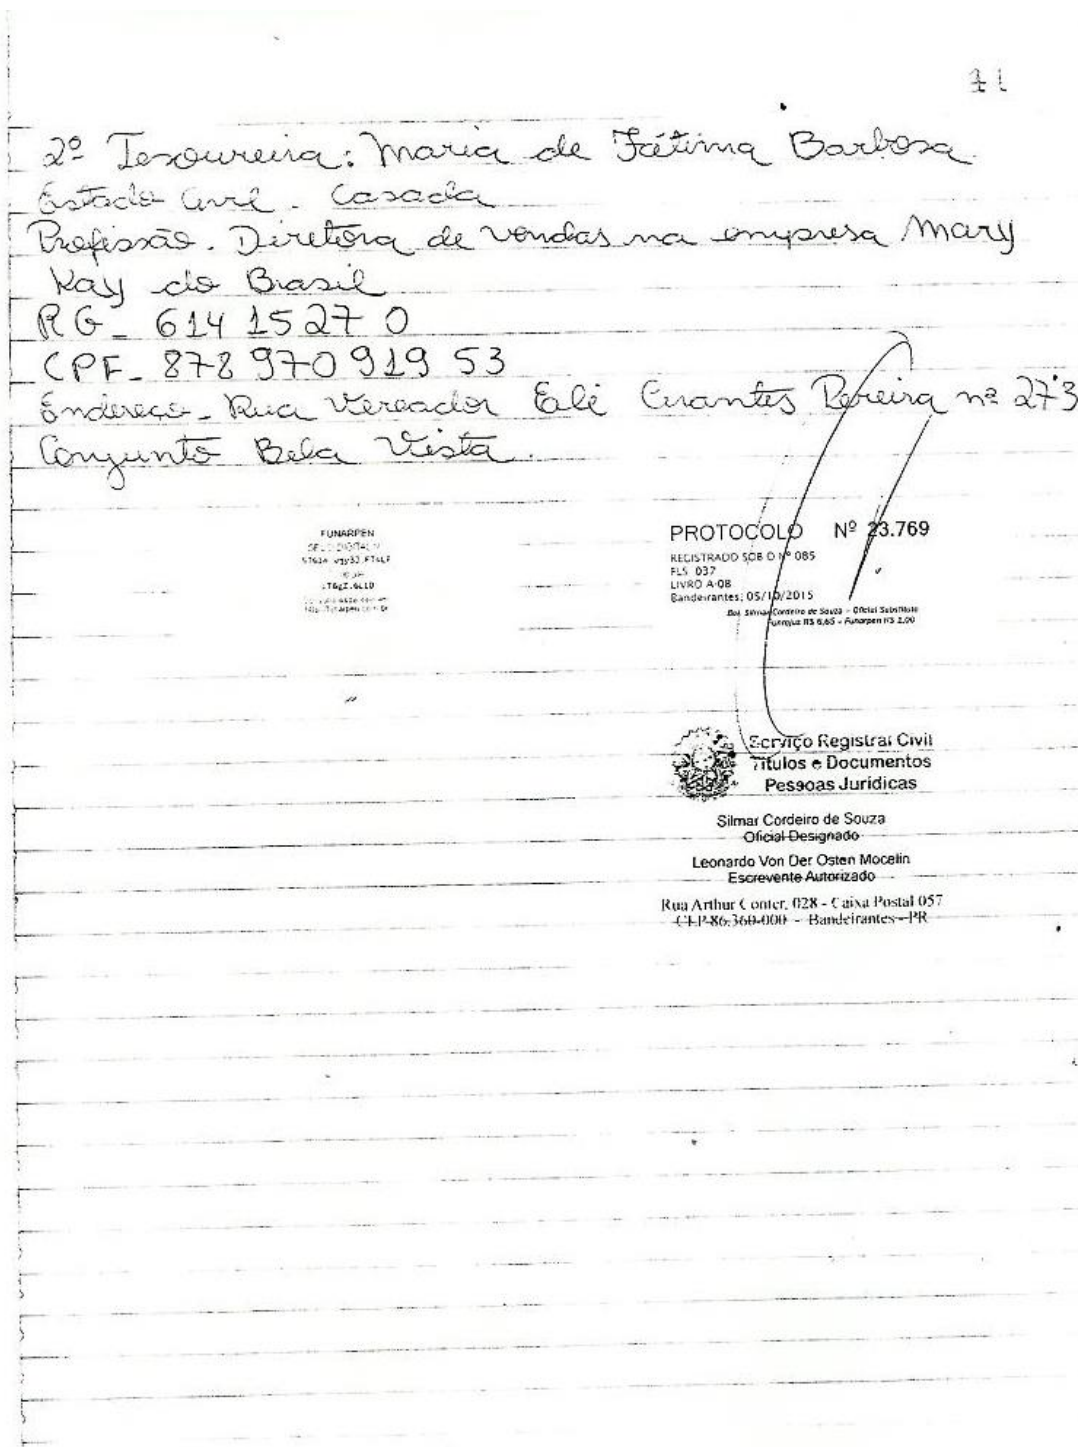 11
2º Tesoureira: Maria de Fátima Barbosa.
Estado Civil - Casada
Profissão. Diretora de vendas na empresa Mary
Kay do Brasil
RG - 614 1527 0
CPF - 878 970 919 53
Endereço - Rua Vereador Eli Arantes Pereira nº 273
Conjunto Bela Vista.
FUNARPEN
SELO DIGITAL Nº
PROTOCOLO Nº 23.769
REGISTRADO SOB O Nº 085
FLS 037
LIVRO A-08
Bandeirantes, 05/10/2015
Bel. Silmar Cordeiro de Souza - Oficial Substituto
Funrejus R$ 6,65 - Funarpen R$ 1,00
Serviço Registral Civil
Títulos e Documentos
Pessoas Jurídicas
Silmar Cordeiro de Souza
Oficial Designado
Leonardo Von Der Osten Mocelin
Escrevente Autorizado
Rua Arthur Conter, 028 - Caixa Postal 057
CEP 86.360-000 - Bandeirantes - PR